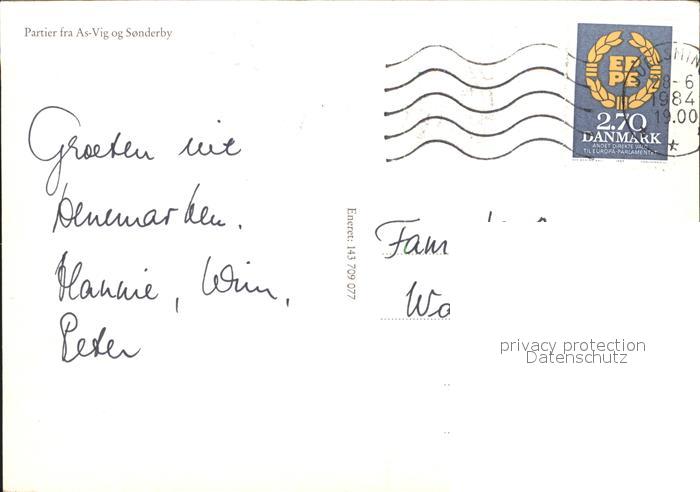 Partier fra As-Vig og Sønderby
EF
PE
2.70
DANMARK
ANDET DIREKTE VALG
TIL EUROPA-PARLAMENTET
28-6
1984
19.00
Groeten uit
Denemarken.
Hannie, Wim,
Peter
Eneret: 143 709 077
Fam
Wo
privacy protection
Datenschutz